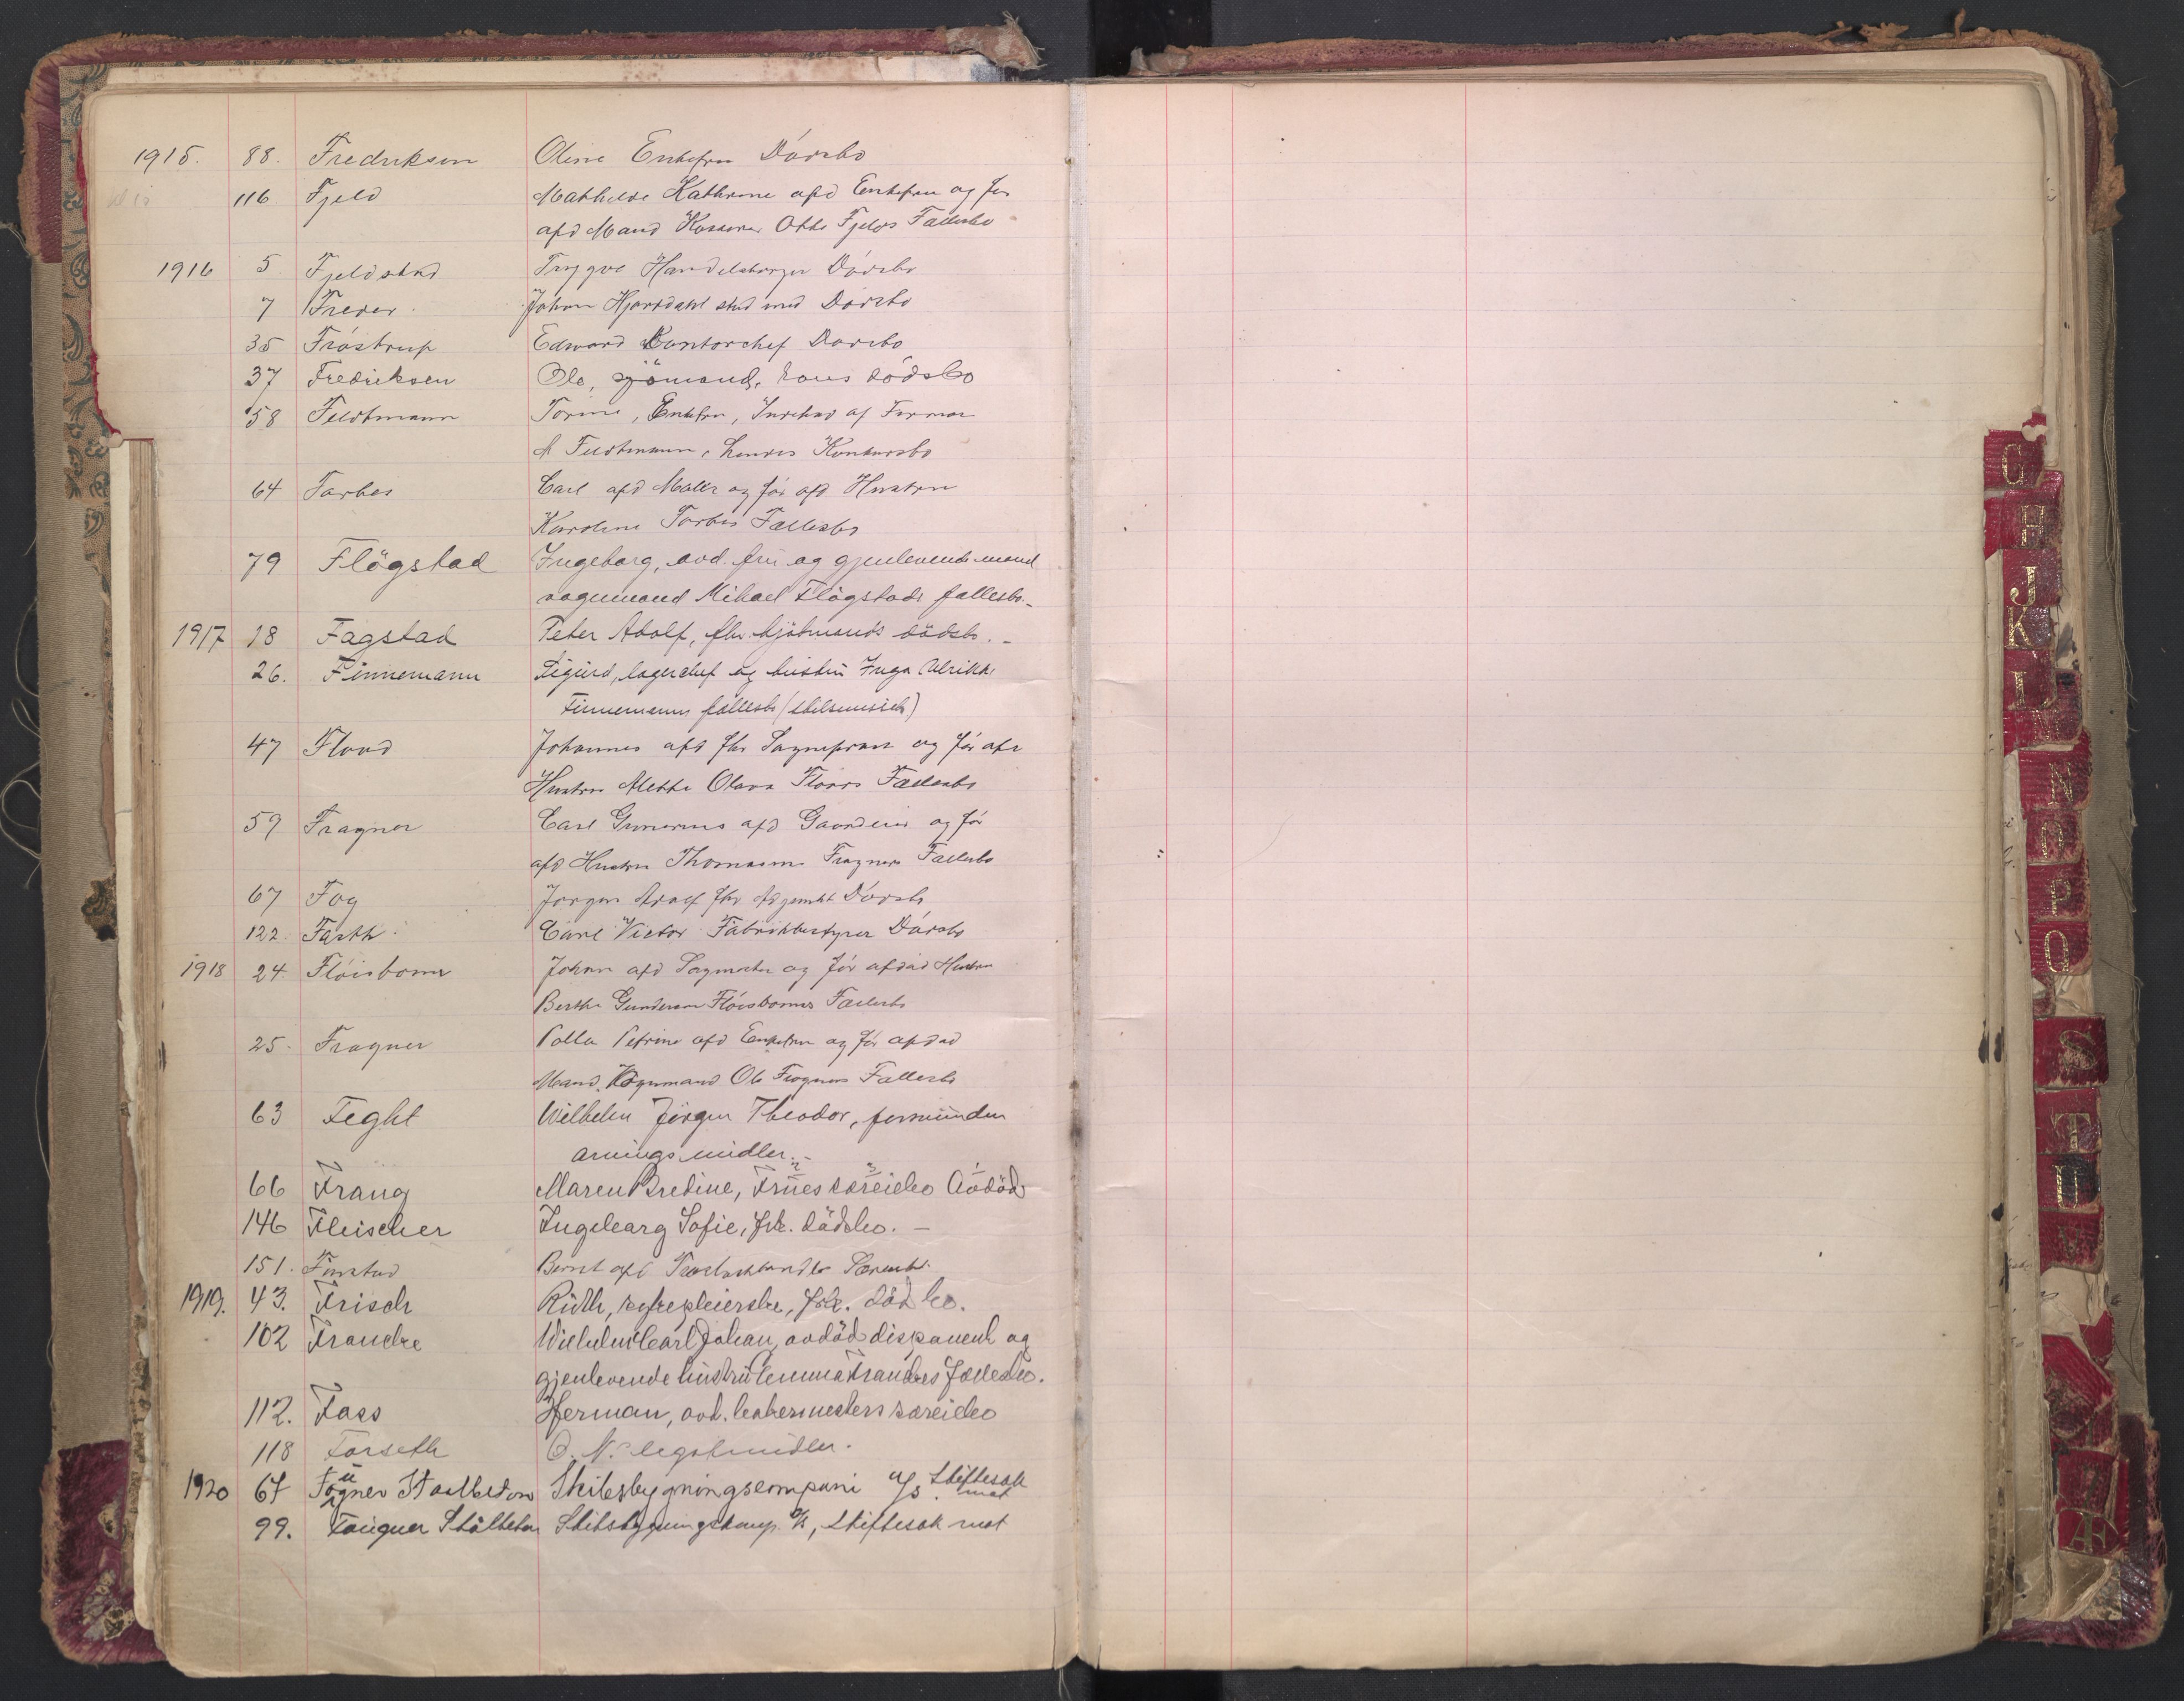 1915. 88. Fredriksen Oline Enkefru Dödsbo
116 Fjeld Mathilde Kathrine afd Enkefru og før
afd Mand Kasserer Otto Fjelds Fællesbo
1916 5 Fjeldstad Trygve Handelsborger Dödsbo
7 Freder Johan Hjortdahl stud med Dödsbo
35 Fröstrup Edward Kontorchef Dödsbo
37 Fredriksen Ole, sjömand, hans dödsbo
58 Feldtmann Enkefru, Indehav af Firmaet
Feldtmann, hendes Konkursbo
64 Forbes Carl afd Maler og før afd Hustru
Karoline Forbes Fællesbo
79 Flögstad Ingeborg, avd. fru og gjenlevende mand
vognmand Mikael Flögstads fællesbo.
1917 18 Fagstad Peter Adolf, fhv. sjömands dödsbo.
26. Finnemann Sigurd, lagerchef og hustru Inga Ulrikke
Finnemanns fællesbo
47 Flood Johannes afd fhv Sogneprest og før afd
Hustru Alette Olava Floods Fællesbo
59 Fragner Carl Gunerius afd Gaardeier og før
afd Hustru Thomasine Fragners Fællesbo
67 Fog Jørgen fhv Dödsbo
122. Fasth Carl Victor Fabrikbestyrer Dödsbo
1918 24. Flöisbonn Johan afd og før afdød Hustru
Berthe Gundersen Flöisbonns Fællesbo
25. Frogner Petrine afd Enkefru og før afdød
Mand, Vognmand Ole Frogners Fællesbo
63 Feght Wilhelm Jörgen Theodor,
arvingsmidler.
66 Frang Maren Bredine, Frues særeiebo Avdöd
146 Fleischer Ingeborg Sofie, frk. dödsbo.
151. Finstad Bernt afd Særeiebo
1919. 43. Frisch Ruth, sykepleierske, frk. dödsbo.
102 Francke Wilhelm Carl Johan, avdöd disponent og
gjenlevende hustru Emma Franckes fællesbo.
112. Fass Herman, avd. særeiebo
118 Forseth O. N. legatmidler.
1920 67 Fougner Staalbeton Skibsbygningscompani A/S. Skiftesak
mot
99. Fougner Stålbeton Skibsbygningskomp. A/S, Skiftesak mot
G
H
J
K
L
M
N
O
P
Q
S
T
U
V
Æ